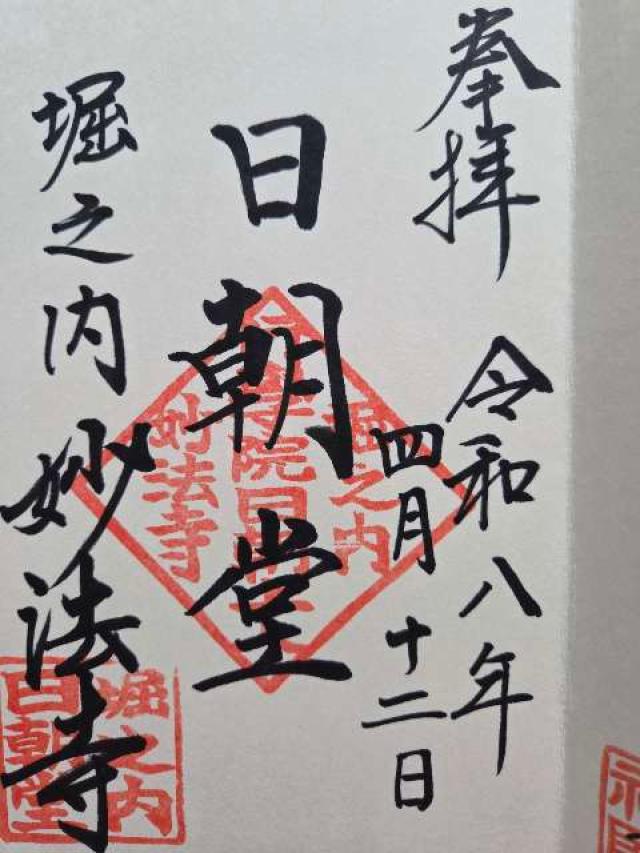 奉拝
令和八年
四月十二日
日朝堂
堀之内妙法寺
堀之内
妙法寺
堀之内
日朝堂